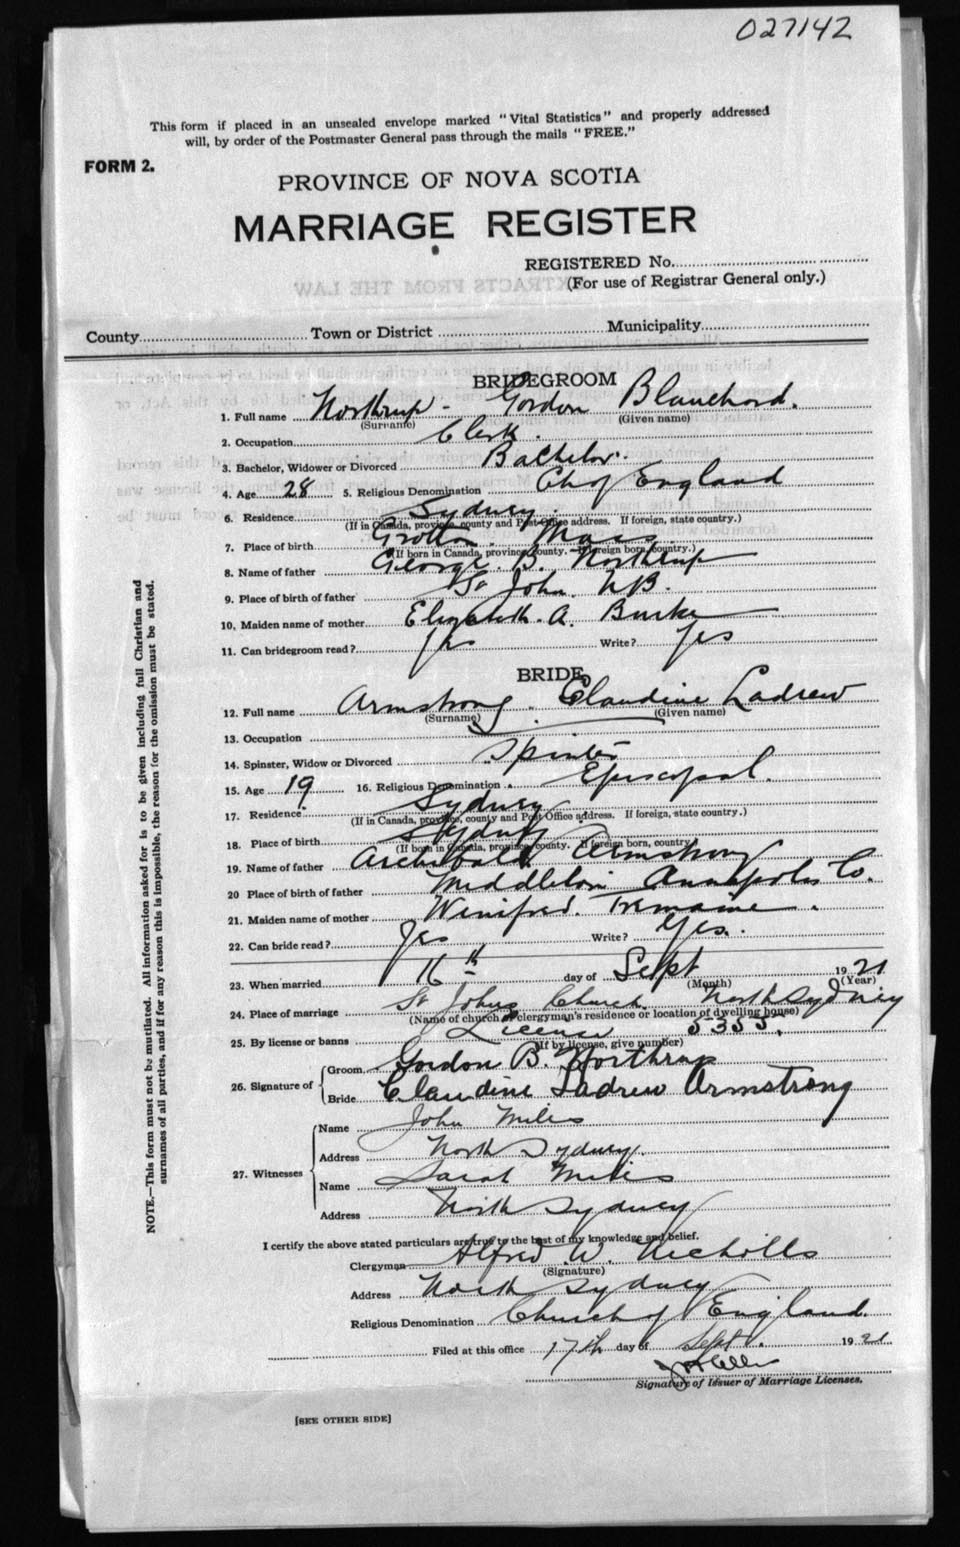 027142
This form if placed in an unsealed envelope marked "Vital Statistics" and properly addressed
will, by order of the Postmaster General pass through the mails "FREE."
FORM 2.
PROVINCE OF NOVA SCOTIA
MARRIAGE REGISTER
REGISTERED No.
(For use of Registrar General only.)
County Town or District Municipality
BRIDEGROOM
1. Full name Northrup - Gordon Blanchard.
(Surname) (Given name)
2. Occupation Clerk.
3. Bachelor, Widower or Divorced Bachelor.
4. Age 28 5. Religious Denomination Ch of England
6. Residence Sydney.
(If in Canada, province, county and Post Office address. If foreign, state country.)
7. Place of birth Grotton Mass
(If born in Canada, province, county. If foreign born, country.)
8. Name of father George. B. Northrup
9. Place of birth of father St John. N.B.
10. Maiden name of mother Elizabeth. A. Burke
11. Can bridegroom read? Yes Write? Yes
BRIDE
12. Full name Armstrong. Claudine Ladrew
(Surname) (Given name)
13. Occupation
14. Spinster, Widow or Divorced Spinster
15. Age 19 16. Religious Denomination Episcopal.
17. Residence Sydney
(If in Canada, province, county and Post Office address. If foreign, state country.)
18. Place of birth Sydney
(If born in Canada, province, county. If foreign born, country.)
19. Name of father Archibald Armstrong
20 Place of birth of father Middleton Annapolis Co.
21. Maiden name of mother Winifred. Tremaine.
22. Can bride read? Yes Write? Yes.
23. When married 16th day of Sept 1921
(Month) (Year)
24. Place of marriage St Johns Church North Sydney
(Name of church clergyman's residence or location of dwelling house)
25. By license or banns License 5355.
(If by license, give number)
26. Signature of Groom Gordon B. Northrup
Bride Claudine Ladrew Armstrong
27. Witnesses Name John Miles
Address North Sydney.
Name Sarah Miles
Address North Sydney
I certify the above stated particulars are true to the best of my knowledge and belief.
Clergyman Alfred W. Nicholls
(Signature)
Address North Sydney
Religious Denomination Church of England
Filed at this office 17th day of Sept. 1921
Signature of Issuer of Marriage Licenses.
[SEE OTHER SIDE]
NOTE.—This form must not be mutilated. All information asked for is to be given including full Christian and
surnames of all parties, and if for any reason this is impossible, the reason for the omission must be stated.